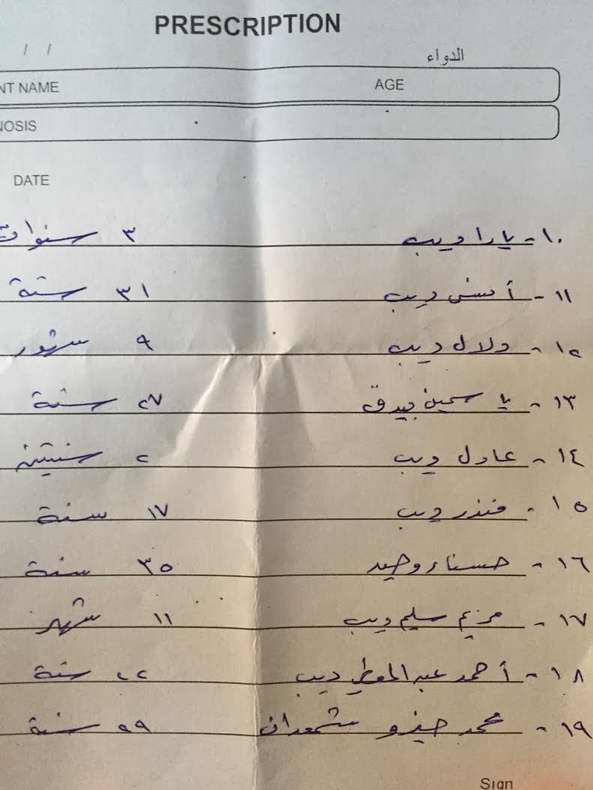 PRESCRIPTION
/ /
الدواء
NT NAME AGE
NOSIS
DATE
١٠- يارا ديب ٣ سنوات
١١- أ ديب ٣١ سنة
١٢- دلال ديب ٩ شهور
١٣- ياسمين بيدق ٢٧ سنة
١٤- عادل ديب ٢ سنتين
١٥- منذر ديب ١٧ سنة
١٦- حسناء وحيد ٣٥ سنة
١٧- مريم سليم ديب ١١ شهر
١٨- أحمد عبد المعطي ديب ٢٢ سنة
١٩- محمد شمعدان سنة
Sign